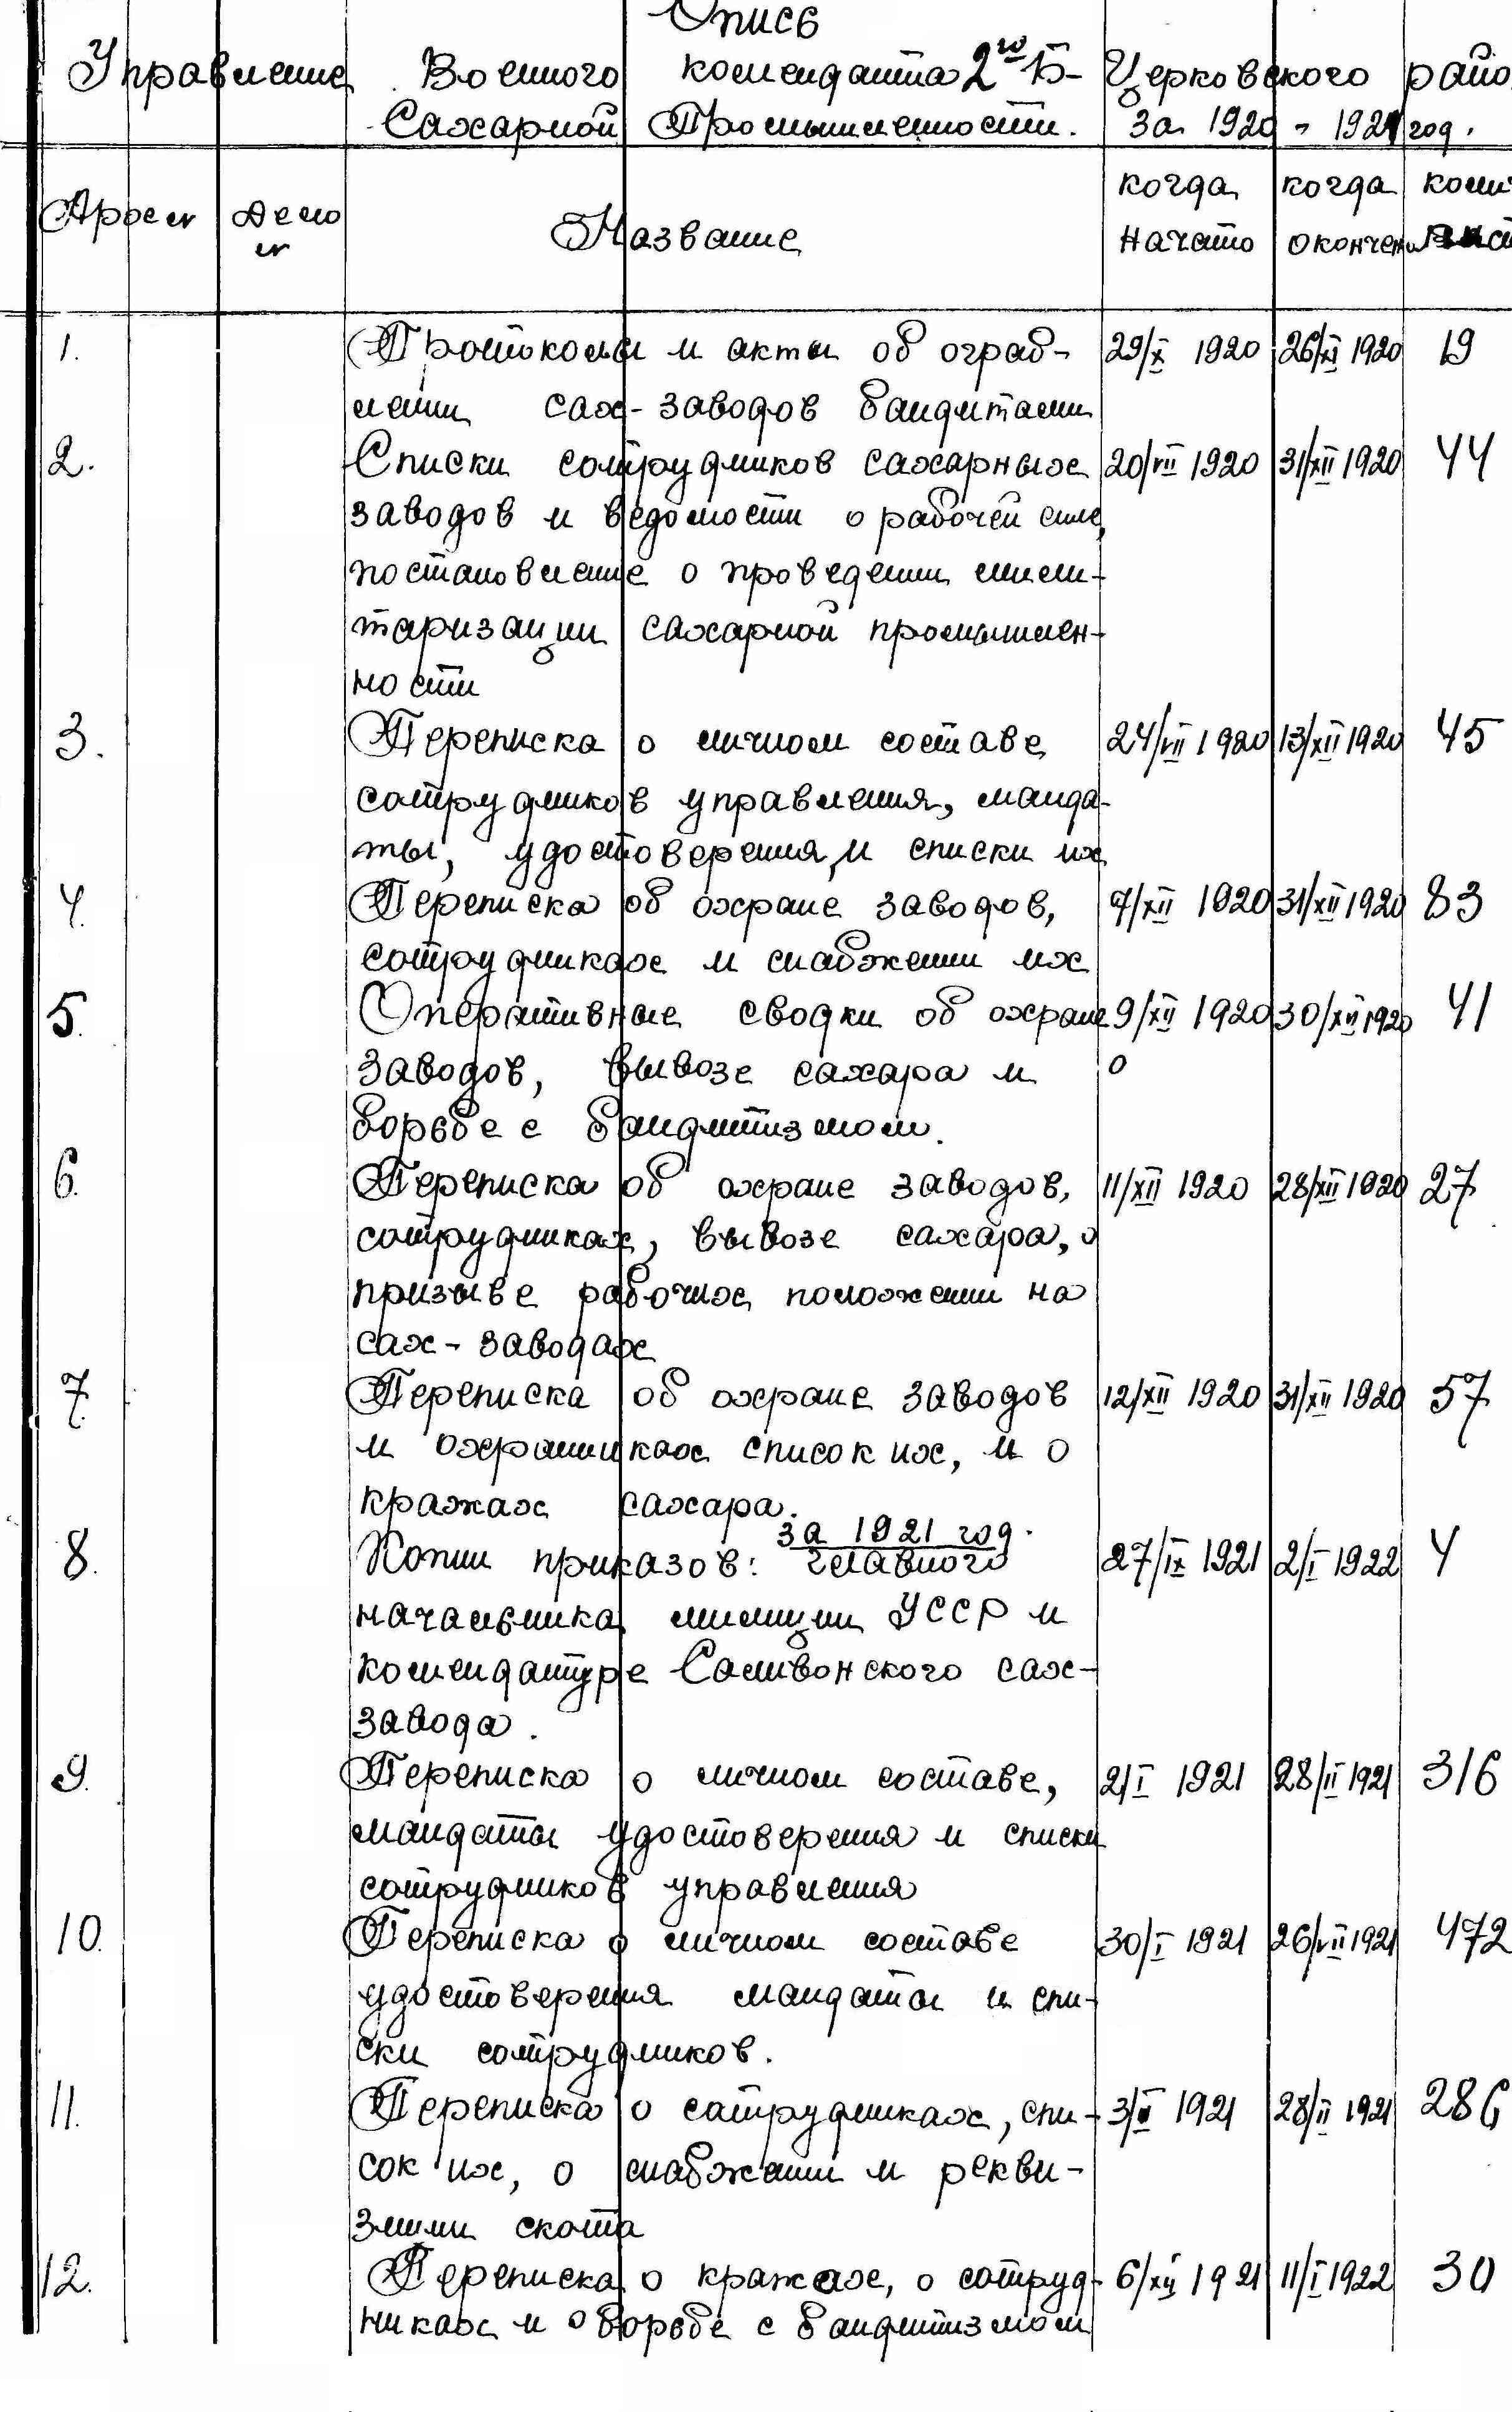 Опись
Управление Военного коменданта 2го Б-Церковского райо
Сахарной Промышленности. За 1920 - 1921 год.
Архен Дело когда когда коли
н Название начато окончено лист
1. Протоколы и акты об ограб- 29/X 1920 26/XI 1920 19
лении сах-заводов бандитами
2. Списки сотрудников сахарных 20/VII 1920 31/XII 1920 44
заводов и ведомости о рабочей силе,
постановление о проведении мили-
таризации сахарной промышлен-
ности
3. Переписка о личном составе 24/VII 1920 13/XII 1920 45
сотрудников управления, манда-
ты, удостоверения и списки их
4. Переписка об охране заводов, 7/XII 1920 31/XII 1920 83
сотрудниках и снабжении их
5. Оперативные сводки об охране 9/XII 1920 30/XII 1920 41
заводов, вывозе сахара и о
борьбе с бандитизмом.
6. Переписка об охране заводов, 11/XII 1920 28/XII 1920 27
сотрудниках, вывозе сахара, о
призыве рабочих, положении на
сах-заводах
7. Переписка об охране заводов 12/XII 1920 31/XII 1920 57
и охранниках список их, и о
кражах сахара.
за 1921 год.
8. Копии приказов: главного 27/IX 1921 2/I 1922 4
начальника милиции УССР и
комендатуре Саливонского сах-
завода.
9. Переписка о личном составе, 2/I 1921 28/II 1921 316
мандаты удостоверения и списки
сотрудников управления
10. Переписка о личном составе 30/I 1921 26/VII 1921 472
удостоверения мандаты и спи-
ски сотрудников.
11. Переписка о сотрудниках, спи- 3/II 1921 28/II 1921 286
сок их, о снабжении и рекви-
зиции скота
12. Переписка о кражах, о сотруд- 6/XII 1921 11/I 1922 30
никах и о борьбе с бандитизмом